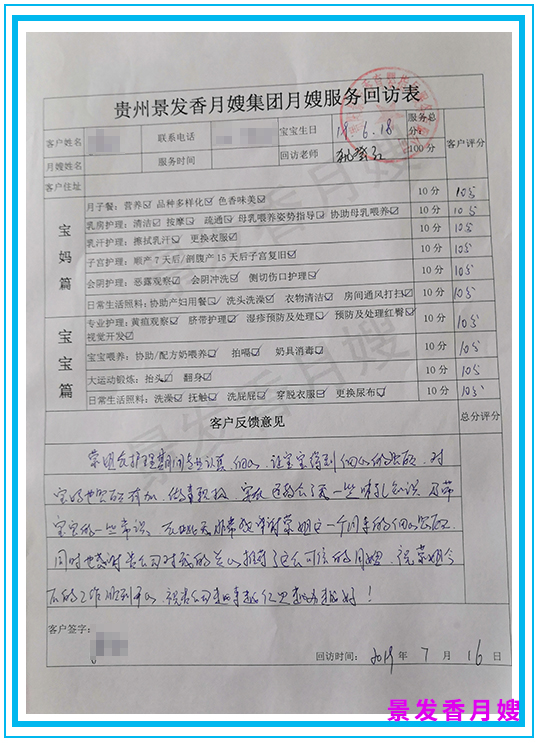 贵州景发香月嫂集团月嫂服务回访表
客户姓名 联系电话 宝宝生日 18.6.18 服务总分: 客户评分
月嫂姓名 服务时间 回访老师 100分
客户住址
宝妈篇
月子餐:营养☑ 品种多样化☑ 色香味美☑ 10分 10分
乳房护理:清洁☑ 按摩☑ 疏通☑ 母乳喂养姿势指导☑ 协助母乳喂养☑ 10分 10分
乳汗护理:擦拭乳汗☑ 更换衣服☑ 10分 10分
子宫护理:顺产7天后/剖腹产15天后子宫复旧☑ 10分 10分
会阴护理:恶露观察☑ 会阴冲洗☑ 侧切伤口护理☑ 10分 10分
日常生活照料:协助产妇用餐☑ 洗头洗澡☑ 衣物清洁☑ 房间通风打扫☑ 10分 10分
宝宝篇
专业护理:黄疸观察☑ 脐带护理☑ 湿疹预防及处理☑ 预防及处理红臀☑
视觉开发☑ 10分 10分
宝宝喂养:协助/配方奶喂养☑ 拍嗝☑ 奶具消毒☑ 10分 10分
大运动锻炼:抬头☑ 翻身☑ 10分 10分
日常生活照料:洗澡☑ 抚触☑ 洗屁屁☑ 穿脱衣服☑ 更换尿布☑ 10分 10分
客户反馈意见 总分评分
荣姐在护理期间专业认真细心,让宝宝得到细心的照顾,对
宝妈也照顾有加,做事积极,
宝宝的一些常识,在此我非常感谢荣姐这一个月来的细心照顾,
同时也感谢贵公司对我的关心推荐了这么可信的月嫂,祝荣姐今
后的工作顺利开心,祝贵公司
客户签字:
回访时间: 2018年7月16日
景发香月嫂
景发香月嫂
景发香月嫂